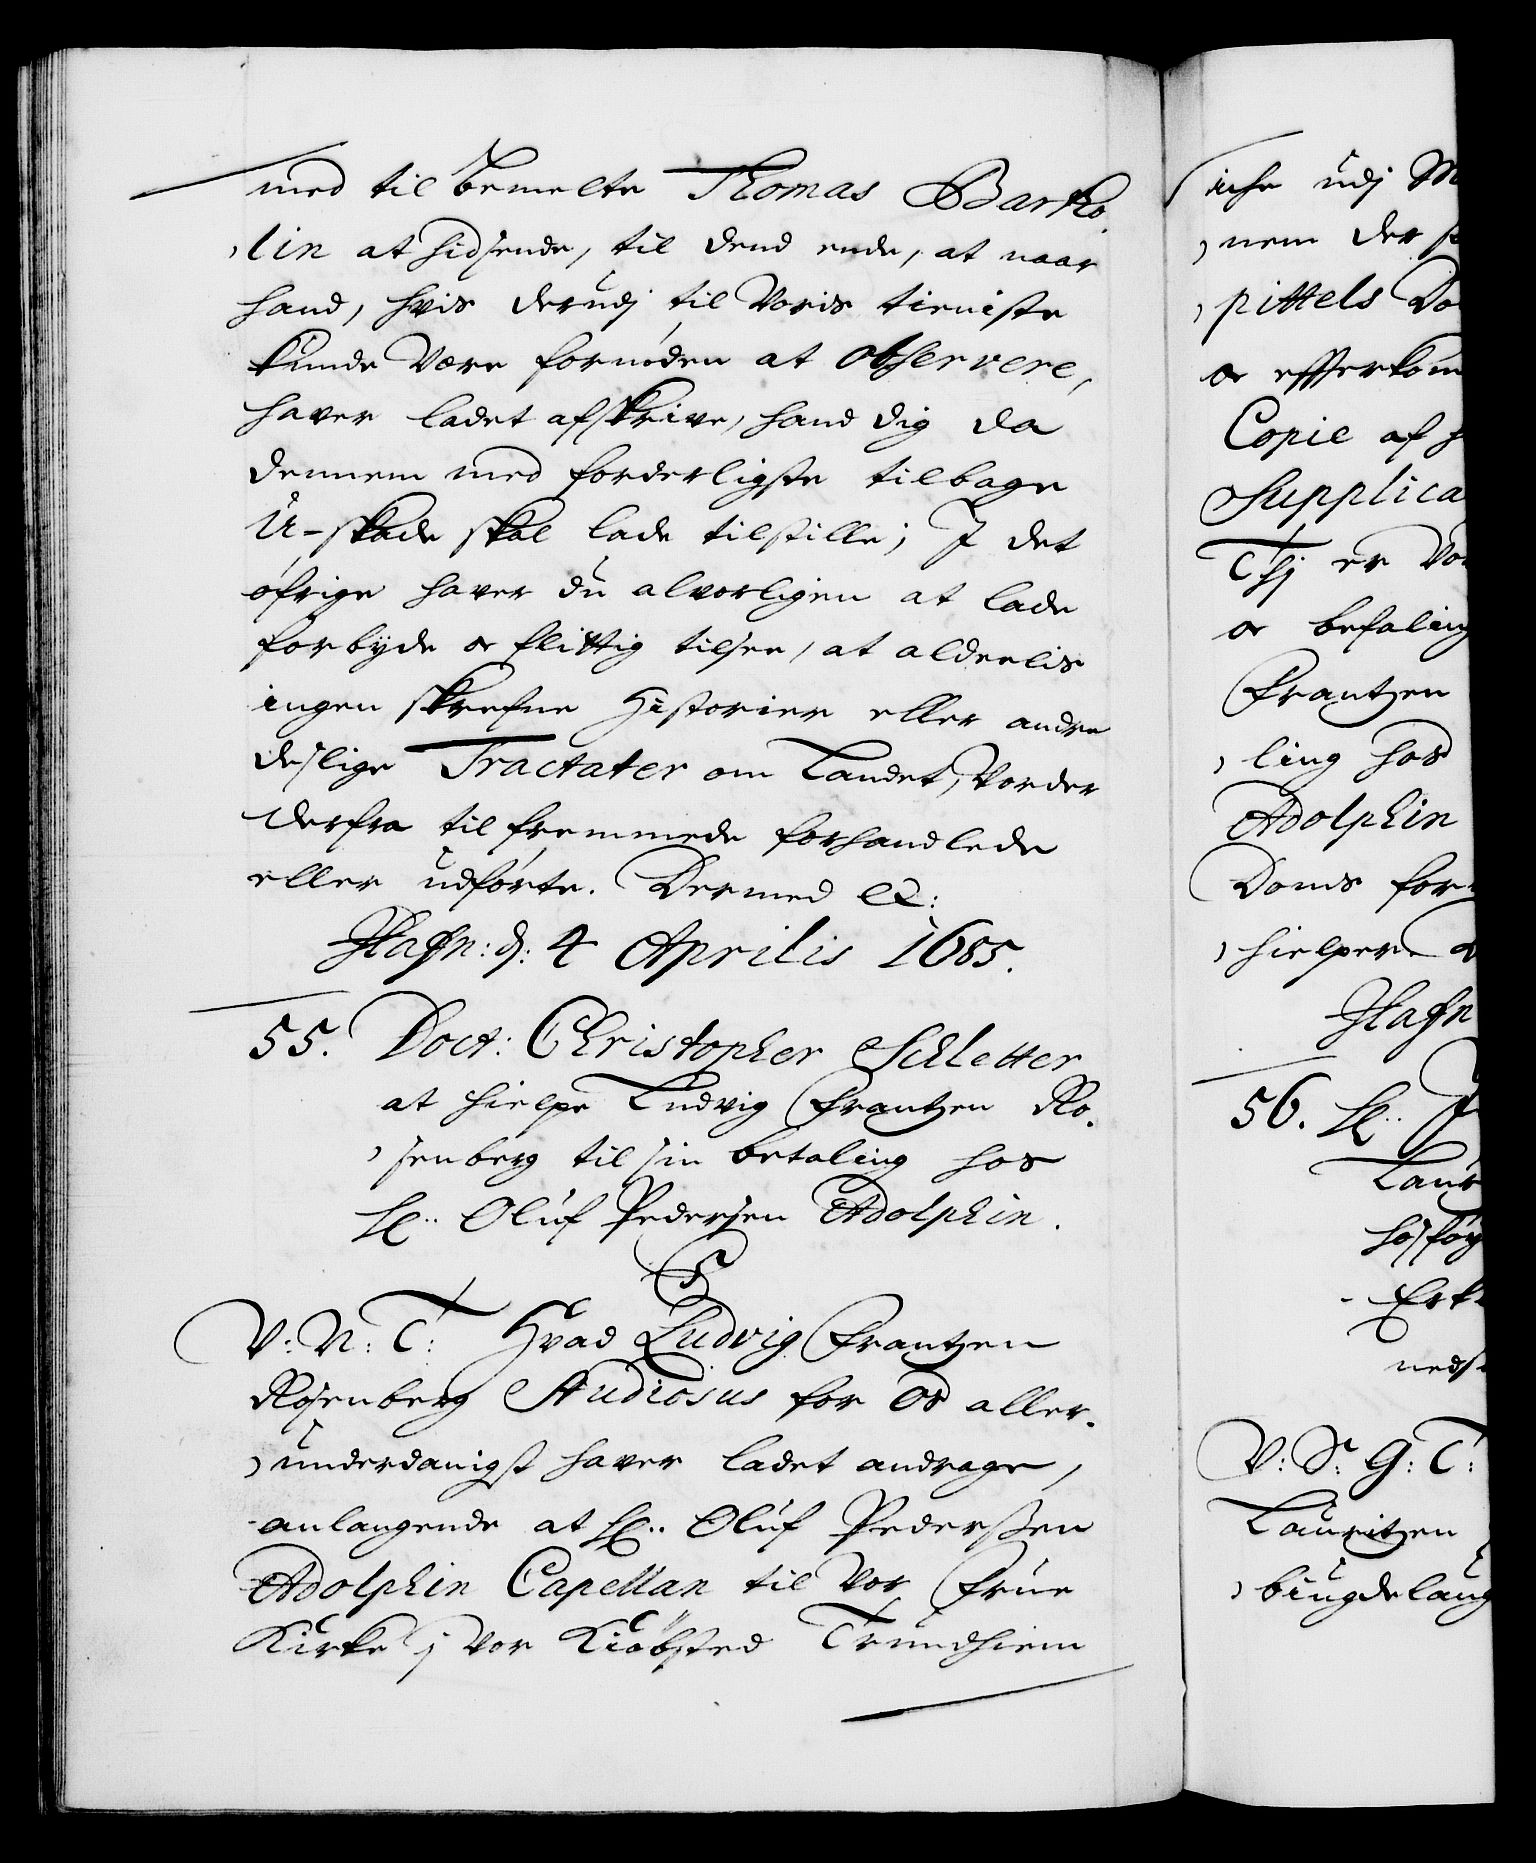 med til bemelte Thomas Bartho,
,lin at hidsende, til dend ende, at naar
hand, hvis derudj til Voris tieniste
kunde Være fornöden at observere,
haver ladet afskrive, hand dig da
dennem med forderligste tilbage
U-skade skal lade tilstille; I det
öfrige haver du alvorligen at lade
forbyde oc flittig tilsee, at aldeelis
ingen skrefne Historier eller andre
deslige Tractater om Landet, Vorder
derfra til fremmede forhandlede
eller udförte. Dermed etc:
Hafn: d: 4 Aprilis 1685.
55. Doct: Christopher Schletter
at hielpe Ludvig Frantzen Ro,
,senberg til sin betaling hos
Sl: Oluf Pedersen Adolphin.
C5
V: N: T: Hvad Ludvig Frantzen
Rosenberg Studiosus for Os aller,
,underdanigst haver ladet andrage,
anlangende at Sl: Oluf Pederssen
Adolphin Capellan til Vor Frue
Kirke j Vor Kiöbsted Trundhiem
udj
,nem der
,pittels
oc efterkom
Copie af
Supplica
Thj er Vor
oc befaling
Frantzen
,ling hos
Adolphin
Doms for
,hielper
Hafn
56. Sl:
Laur
V: S: G: T:
Lauritzen
,bÿugdelaug